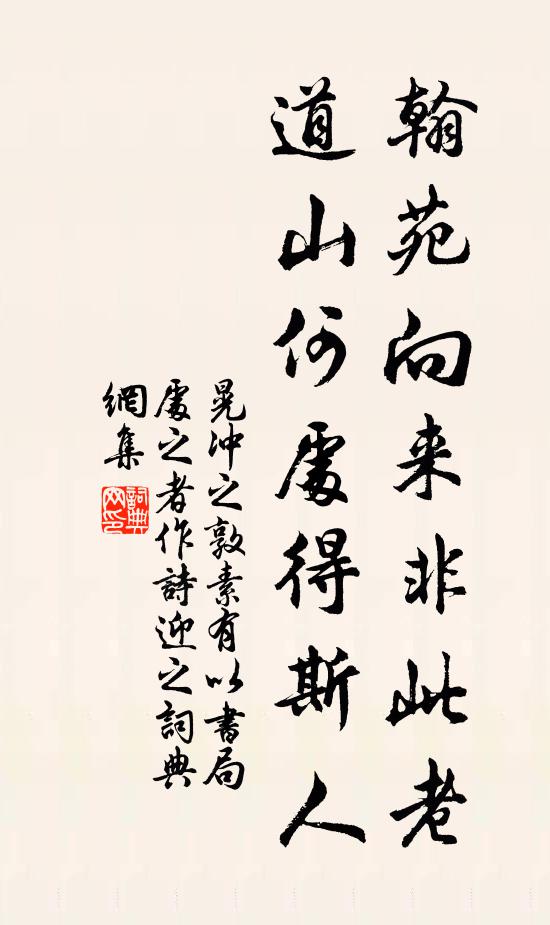 翰苑向来非此老
道山何處得斯人
晁沖之敦素有以書局
處之者作詩迎之詞典
網集
詞典
网印